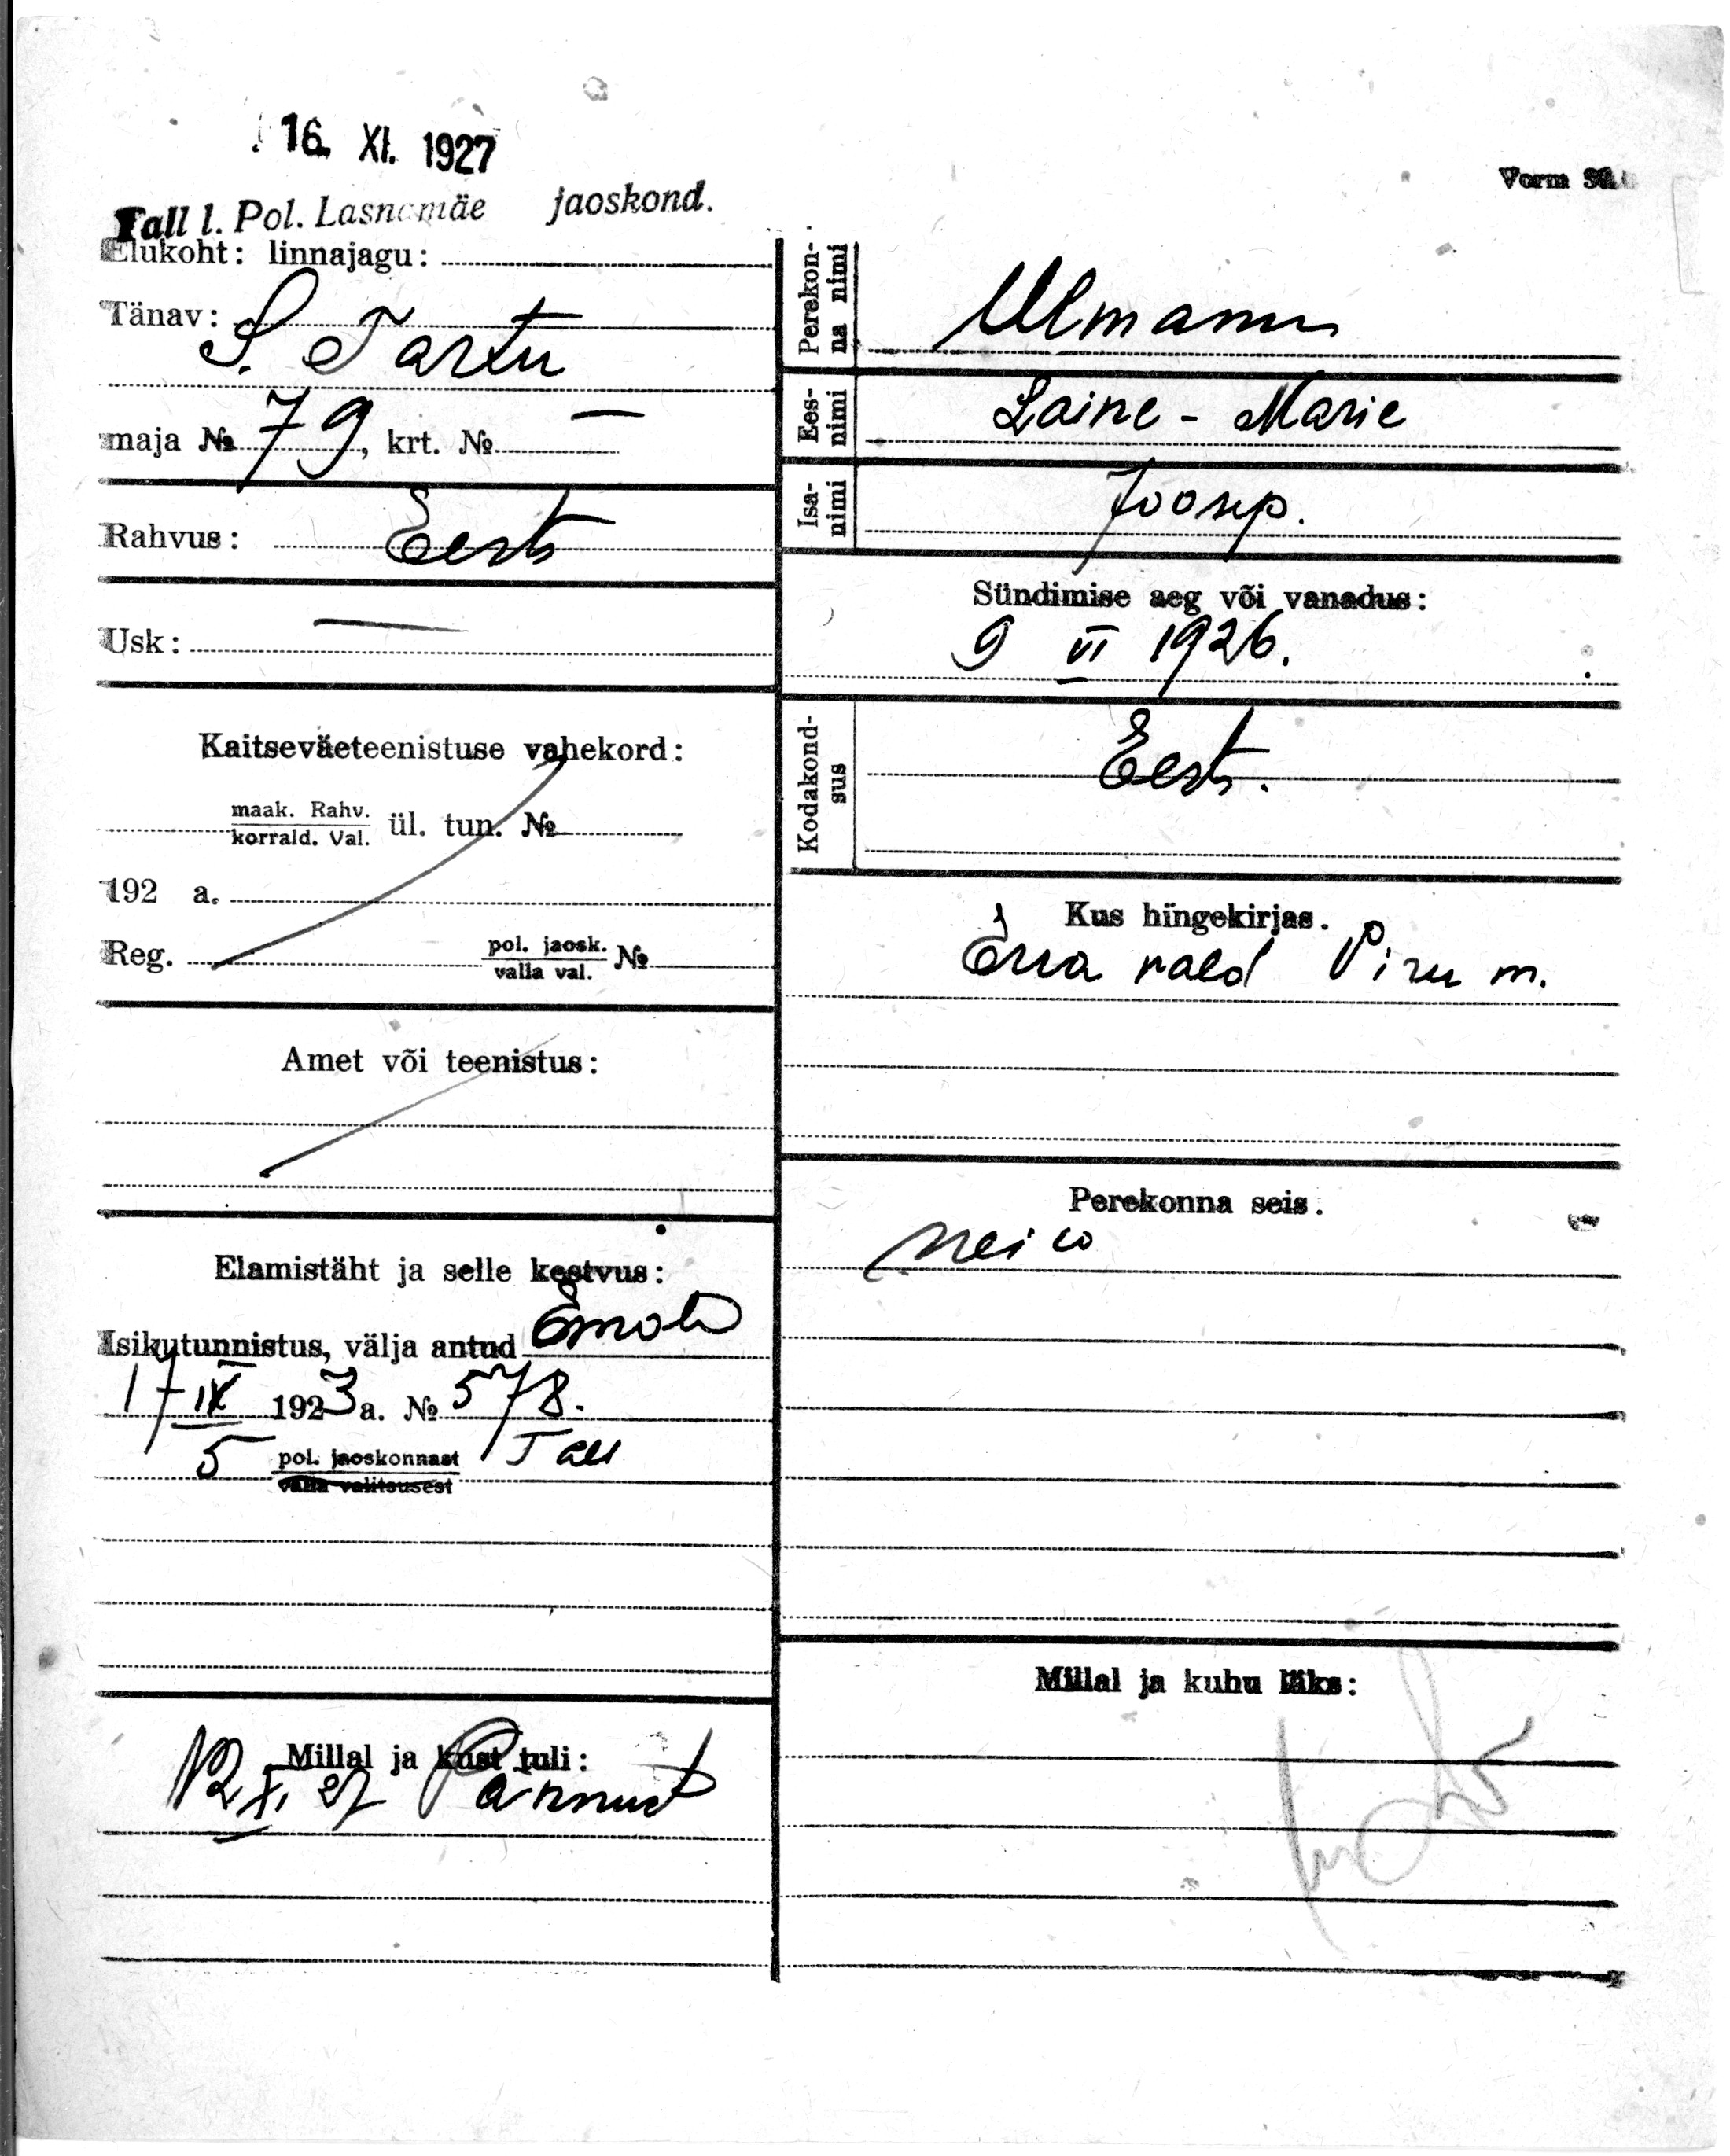 16. XI. 1927
Tall l. Pol. Lasnamäe jaoskond.
Elukoht: linnajagu:
Tänav:
S. Tartu
maja № 79, krt. № —
Rahvus: Eesti
Usk: —
Kaitseväeteenistuse vahekord:
maak. Rahv.
korrald. Val. ül. tun. №
192 a.
Reg. pol. jaosk.
valla val. №
Amet või teenistus:
Elamistäht ja selle kestvus:
Isikutunnistus, välja antud Emale
17 IX 1923 a. № 578.
5 pol. jaoskonnast Tall
valla valitsusest
Millal ja kust tuli:
12 XI 27 Pärnust
Vorm
Perekon-
na nimi
Ulmann
Ees-
nimi
Laine - Marie
Isa-
nimi
Joosep.
Sündimise aeg või vanadus:
9 VI 1926.
Kodakond-
sus
Eesti.
Kus hingekirjas.
Erra vald Viru m.
Perekonna seis.
Millal ja kuhu läks: